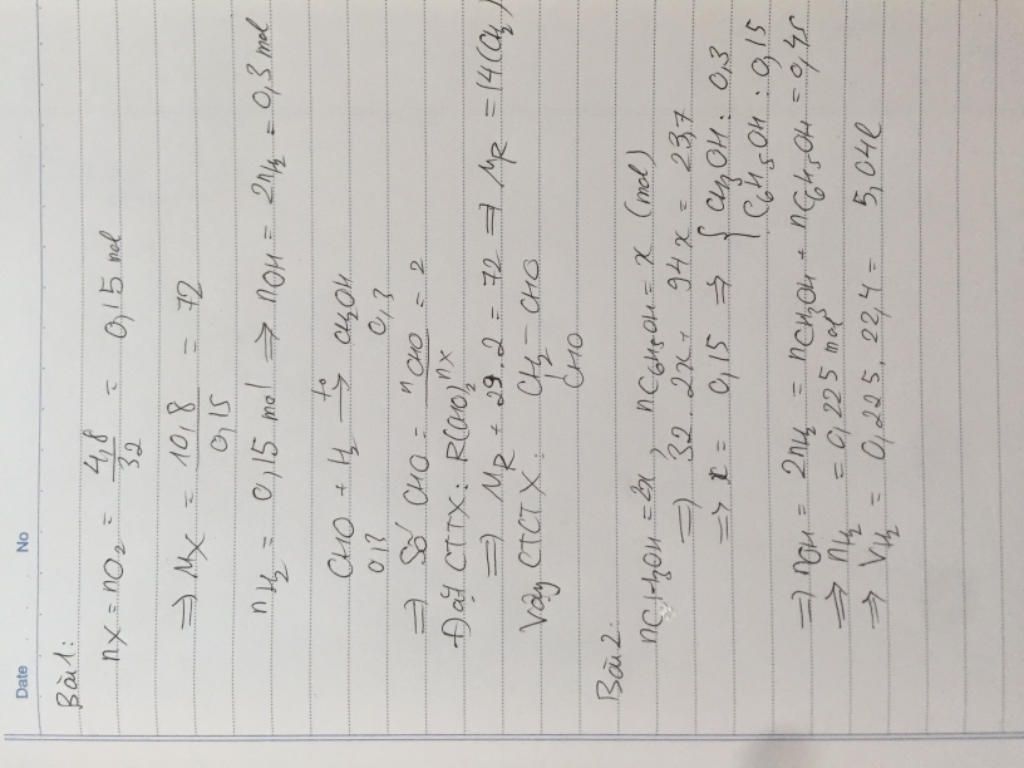 Date No
Bài 1:
nX = nO₂ = 4,8/32 = 0,15 mol
⇒ MX = 10,8/0,15 = 72
nH₂ = 0,15 mol ⇒ nOH = 2nH₂ = 0,3 mol
CHO + H₂ →(t°) CH₂OH
0,3 0,3
⇒ Số CHO = nCHO/nX = 2
Đặt CTTX: R(CHO)₂
⇒ MR + 29.2 = 72 ⇒ MR = 14(CH₂)
Vậy CTCT X: CH₂ - CHO
CHO
Bài 2:
nCH₃OH = 2x, nC₆H₅OH = x (mol)
⇒ 32.2x + 94x = 23,7
⇒ x = 0,15 ⇒ { CH₃OH: 0,3
C₆H₅OH: 0,15
⇒ nOH = 2nH₂ = nCH₃OH + nC₆H₅OH = 0,45
⇒ nH₂ = 0,225 mol
⇒ VH₂ = 0,225.22,4 = 5,04l